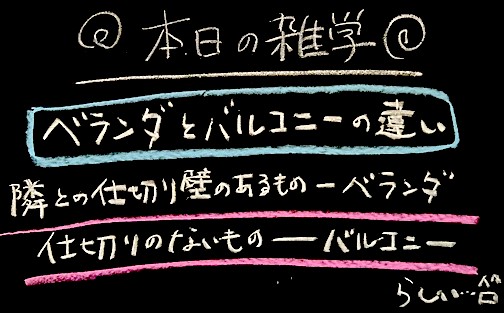 本日の雑学
ベランダとバルコニーの違い
隣との仕切り壁のあるもの ー ベランダ
仕切りのないもの ── バルコニー
らしい…